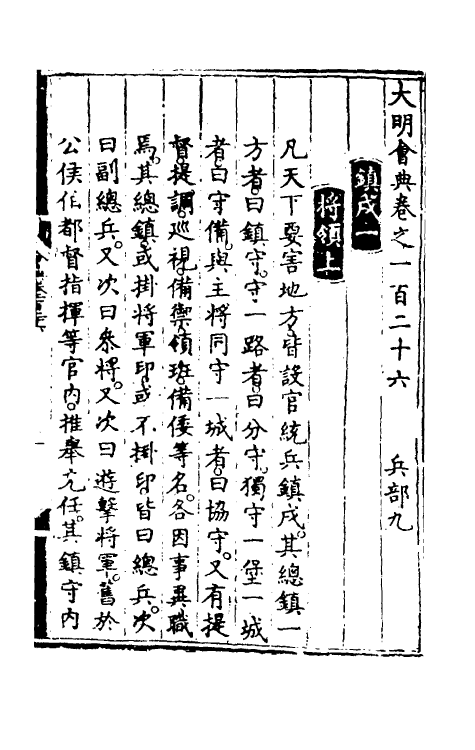 大明會典卷之一百二十六 兵部九
鎮戍一
將領上
凡天下要害地方。皆設官統兵鎮戍。其總鎮一
方者。曰鎮守。守一路者。曰分守。獨守一堡一城
者。曰守備。與主將同守一城者。曰協守。又有提
督。提調。巡視。備禦。領班。備倭等名。各因事異職
焉。其總鎮。或掛將軍印。或不掛印。皆曰總兵。次
曰副總兵。又次曰叅將。又次曰遊擊將軍。舊於
公侯伯都督指揮等官內。推舉充任。其鎮守內